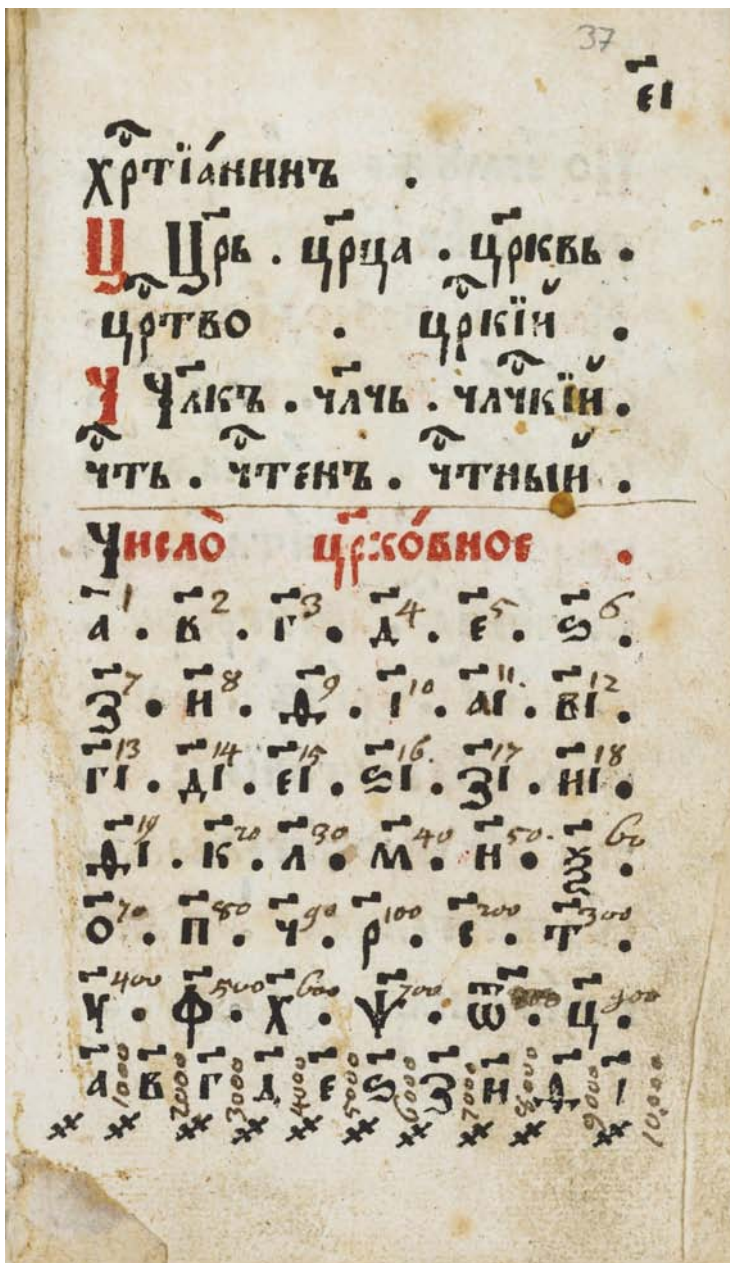 37
е҃і
хрⷭ҇тїа́нинъ .
Ц Цр҃ь . цр҃ца . цр҃квь .
црⷭ҇тво . црⷭ҇кїй .
Ч Чл҃къ . чл҃чь . члⷭ҇чкїй .
чⷭ҇ть . чⷭ҇тенъ . чⷭ҇тный .
Число̀ цр҃ко́вное .
а҃ 1 . в҃ 2 . г҃ 3 . д҃ 4 . е҃ 5 . ѕ҃ 6 .
з҃ 7 . и҃ 8 . ѳ҃ 9 . і҃ 10 . а҃і 11 . в҃і 12 .
г҃і 13 . д҃і 14 . е҃і 15 . ѕ҃і 16 . з҃і 17 . и҃і 18 .
ѳ҃і 19 . к҃ 20 . л҃ 30 . м҃ 40 . н҃ 50 . ѯ҃ 60 .
о҃ 70 . п҃ 80 . ч҃ 90 . р҃ 100 . с҃ 200 . т҃ 300 .
у҃ 400 . ф҃ 500 . х҃ 600 . ѱ҃ 700 . ѿ҃ 800 . ц҃ 900 .
а҃ 1000 в҃ 2000 г҃ 3000 д҃ 4000 е҃ 5000 ѕ҃ 6000 з҃ 7000 и҃ 8000 ѳ҃ 9000 і҃ 10.000
҂ ҂ ҂ ҂ ҂ ҂ ҂ ҂ ҂ ҂